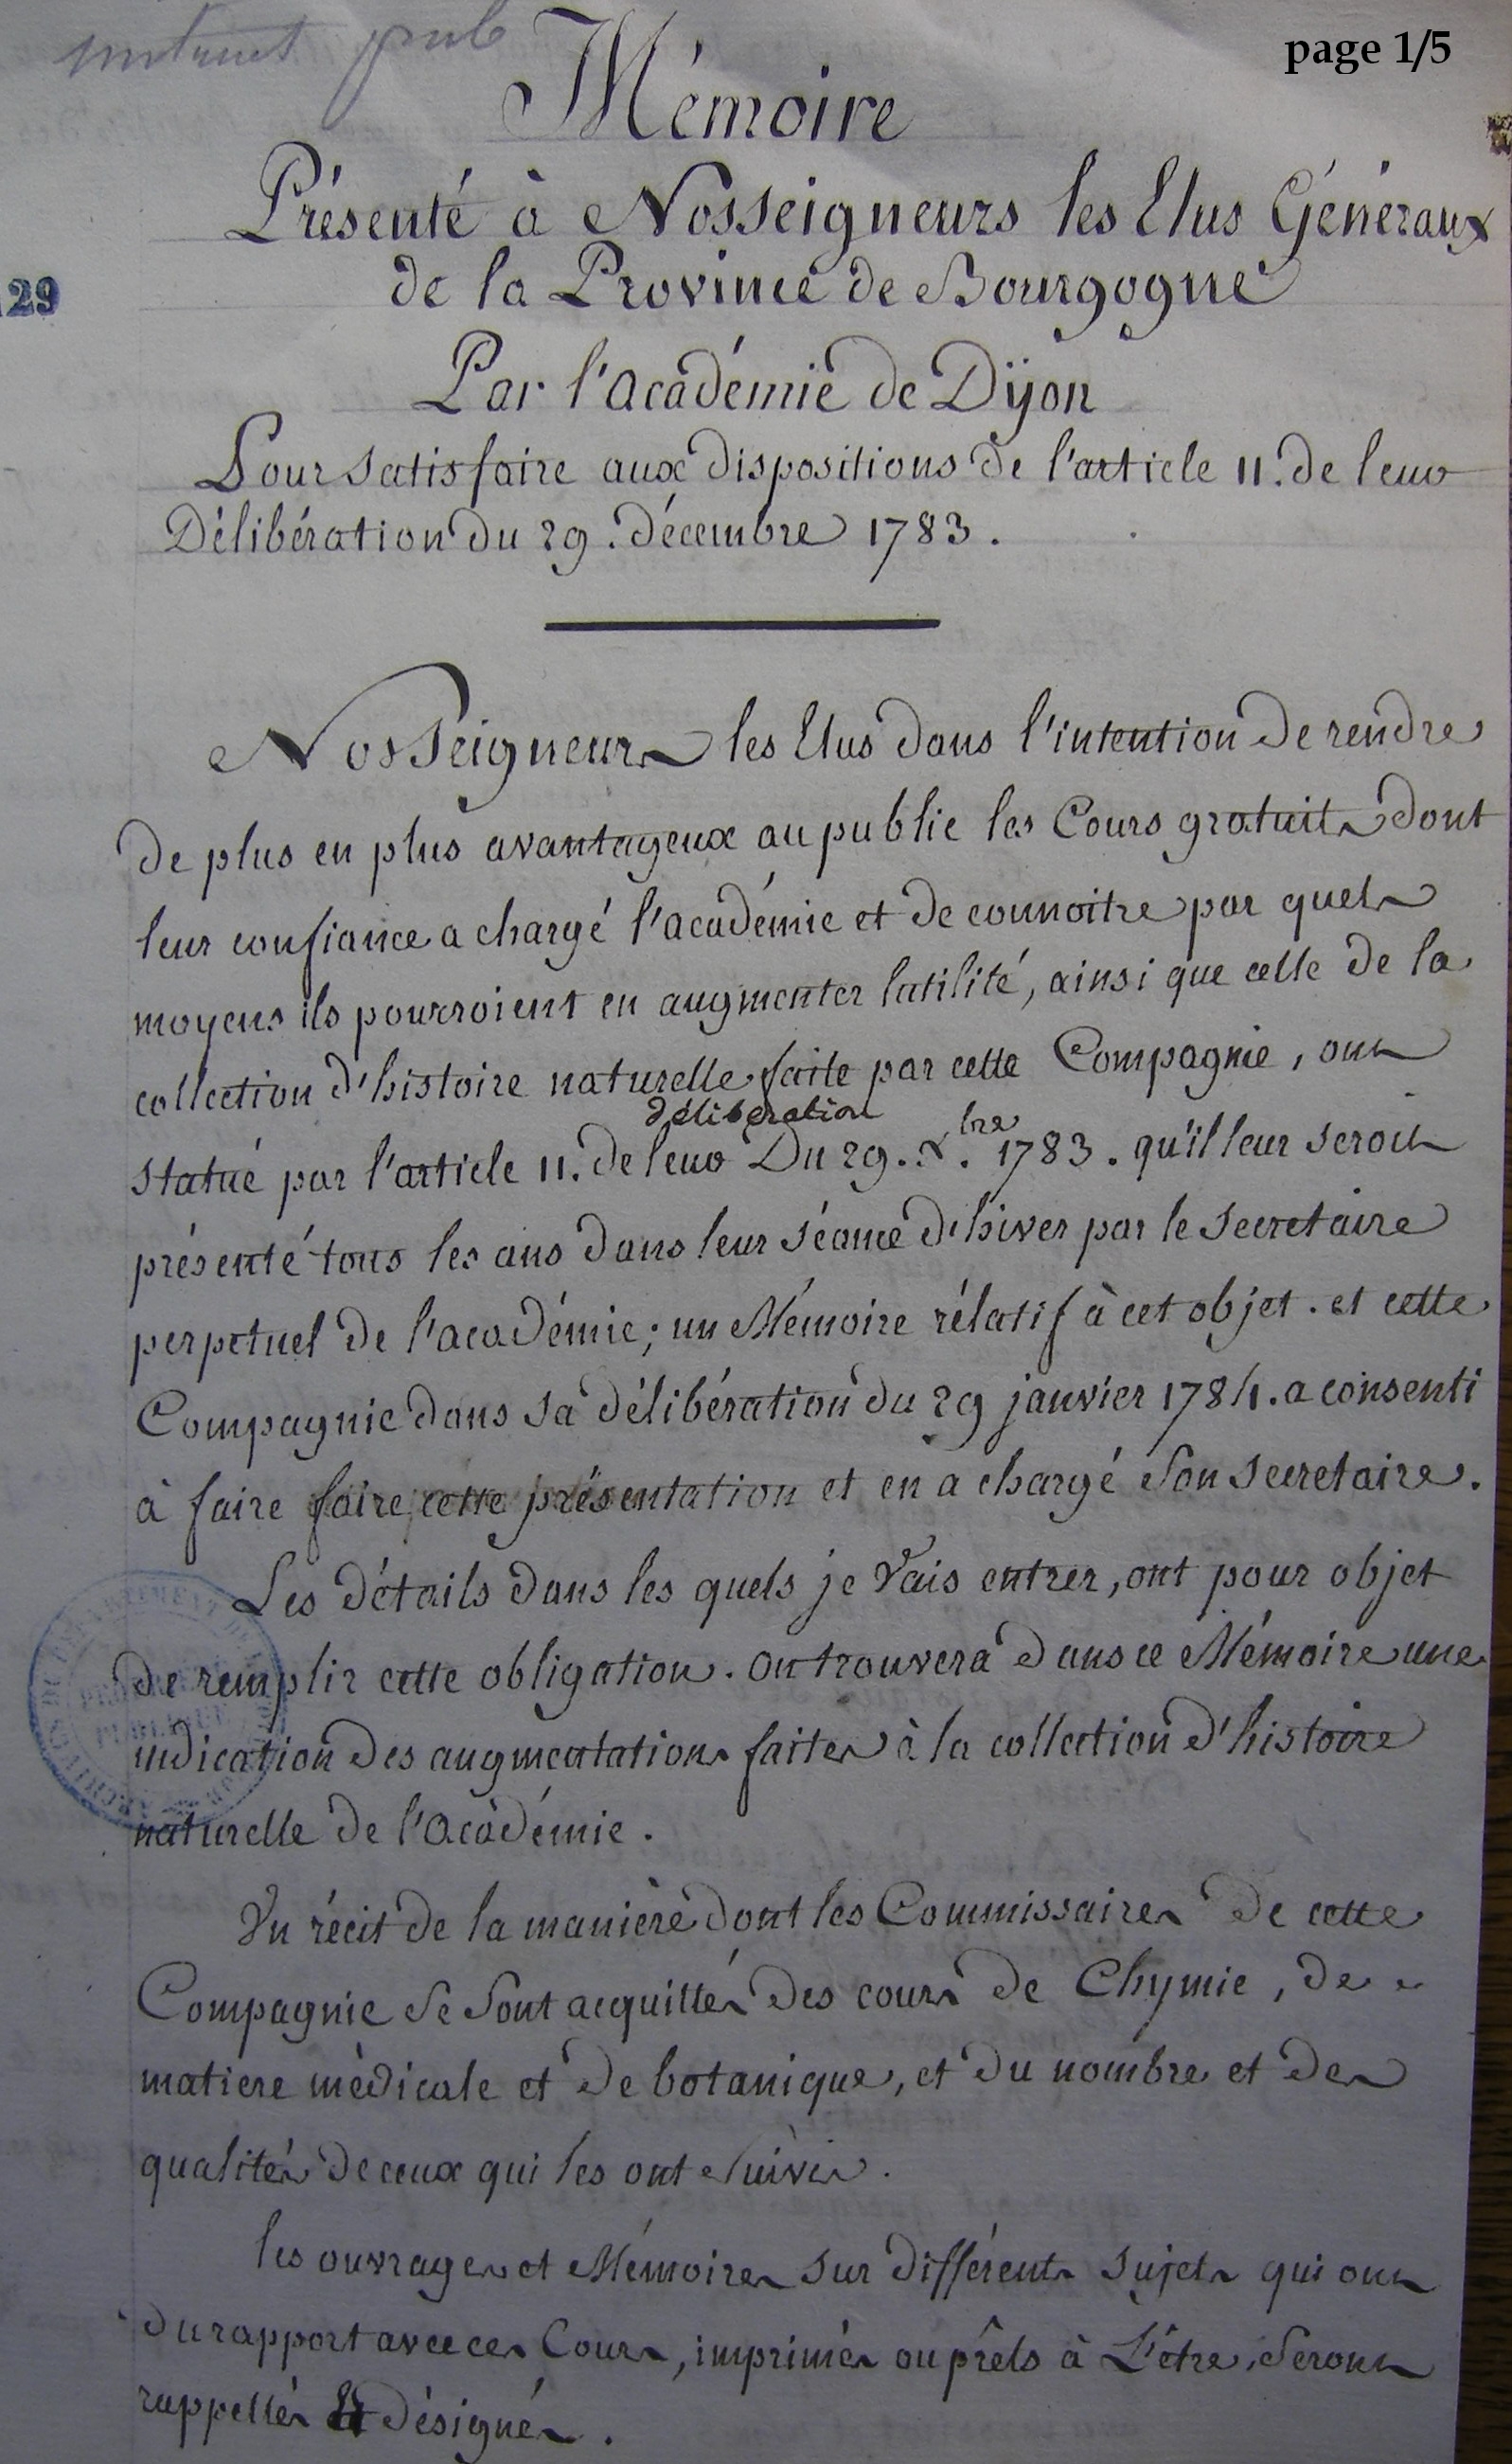 instruct pub
page 1/5
Mémoire
Présenté à Nosseigneurs les Elus Généraux
de la Province de Bourgogne
29
Par l'académie de Dijon
Pour satisfaire aux dispositions de l'article 11. de leur
Délibération du 29. décembre 1783.
Nosseigneurs les Elus dans l'intention de rendre
de plus en plus avantageux au public les Cours gratuits dont
leur confiance a chargé l'académie et de connoitre par quels
moyens ils pourroient en augmenter lutilité, ainsi que celle de la
collection d'histoire naturelle faite par cette Compagnie, ont
délibération
statué par l'article 11. de leur Du 29. Xbre 1783. qu'il leur seroit
présenté tous les ans dans leur séance d'hiver par le secretaire
perpetuel de l'académie; un Mémoire rélatif à cet objet. et cette
Compagnie dans sa délibération du 29 janvier 1784. a consenti
à faire faire cette présentation et en a chargé son secretaire.
Les détails dans les quels je vais entrer, ont pour objet
de remplir cette obligation. on trouvera dans ce Mémoire une
indication des augmentations faites à la collection d'histoire
naturelle de l'académie.
Un récit de la manière dont les Commissaires de cette
Compagnie se sont acquittés des cours de Chymie, de
matiere médicale et de botanique, et du nombre et des
qualités de ceux qui les ont suivis.
les ouvrages et Mémoires sur différents sujets qui ont
du rapport avec ces Cours, imprimés ou prêts à L'être, seront
rappellés Et désignés.